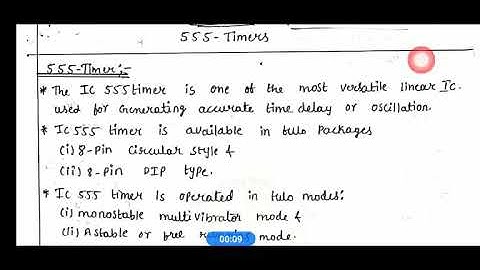 555-Timers
555-Timer:-
* The IC 555 timer is one of the most versatile linear Ic.
used for Generating accurate time delay or oscillation.
* Ic 555 timer is available in two Packages
(i) 8-Pin Circular style &
(ii) 8-pin DIP type.
* Ic 555 timer Is operated in two modes:
(i) monostable multivibrator mode &
(ii) Astable or free mode.
00:09